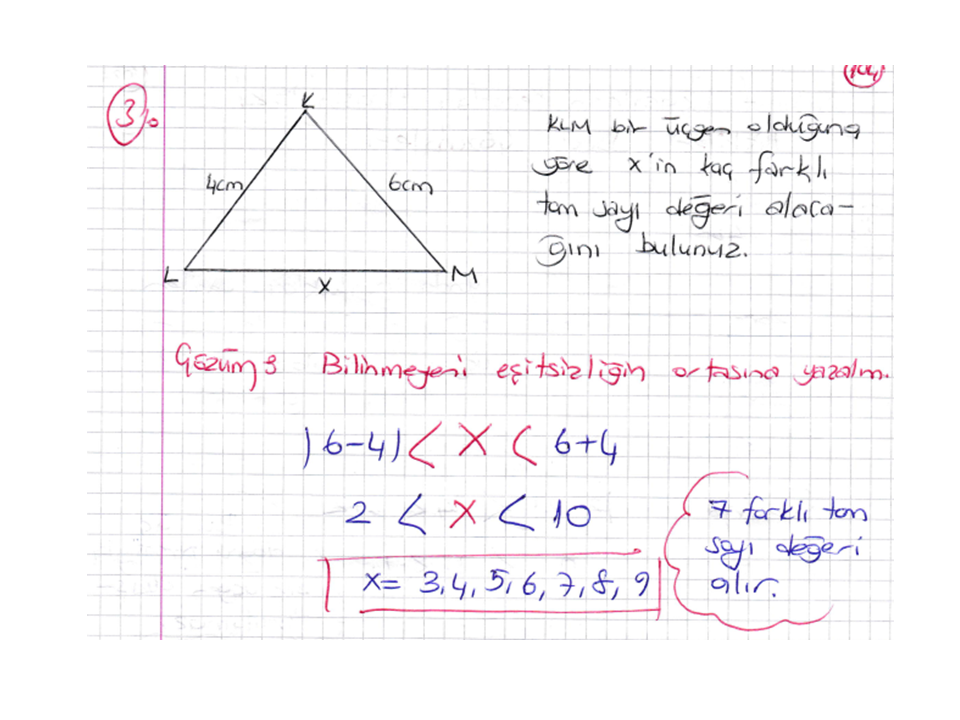 104
3.
K
4cm
6cm
L
M
x
KLM bir üçgen olduğuna
göre x'in kaç farklı
tam sayı değeri alaca-
ğını bulunuz.
Çözüm: Bilinmeyeni eşitsizliğin ortasına yazalım.
|6-4| < x < 6+4
2 < x < 10
x= 3,4,5,6,7,8,9
7 farklı tam
sayı değeri
alır.